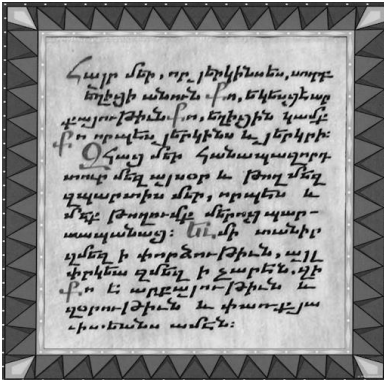 Հայր մեր, որ յերկինսես, սուրբ
եղիցի անուն Քո, եկեսցէ ար
քայութիւն Քո, եղիցին կամք
Քո որպես յերկինս և յերկրի:
Զհաց մեր հանապազորդ
տուր մեզ այսօր և թող մեզ
զպարտիս մեր, որպես և
մեք թողումք մերոց պար-
տապանաց: Եւ մի տանիր
զմեզ ի փորձութիւն, այլ
փրկեա զմեզ ի չարէն. զի
Քո է արքայութիւն և
զօրութիւն և փառք յա
ւիտեանս ամէն: